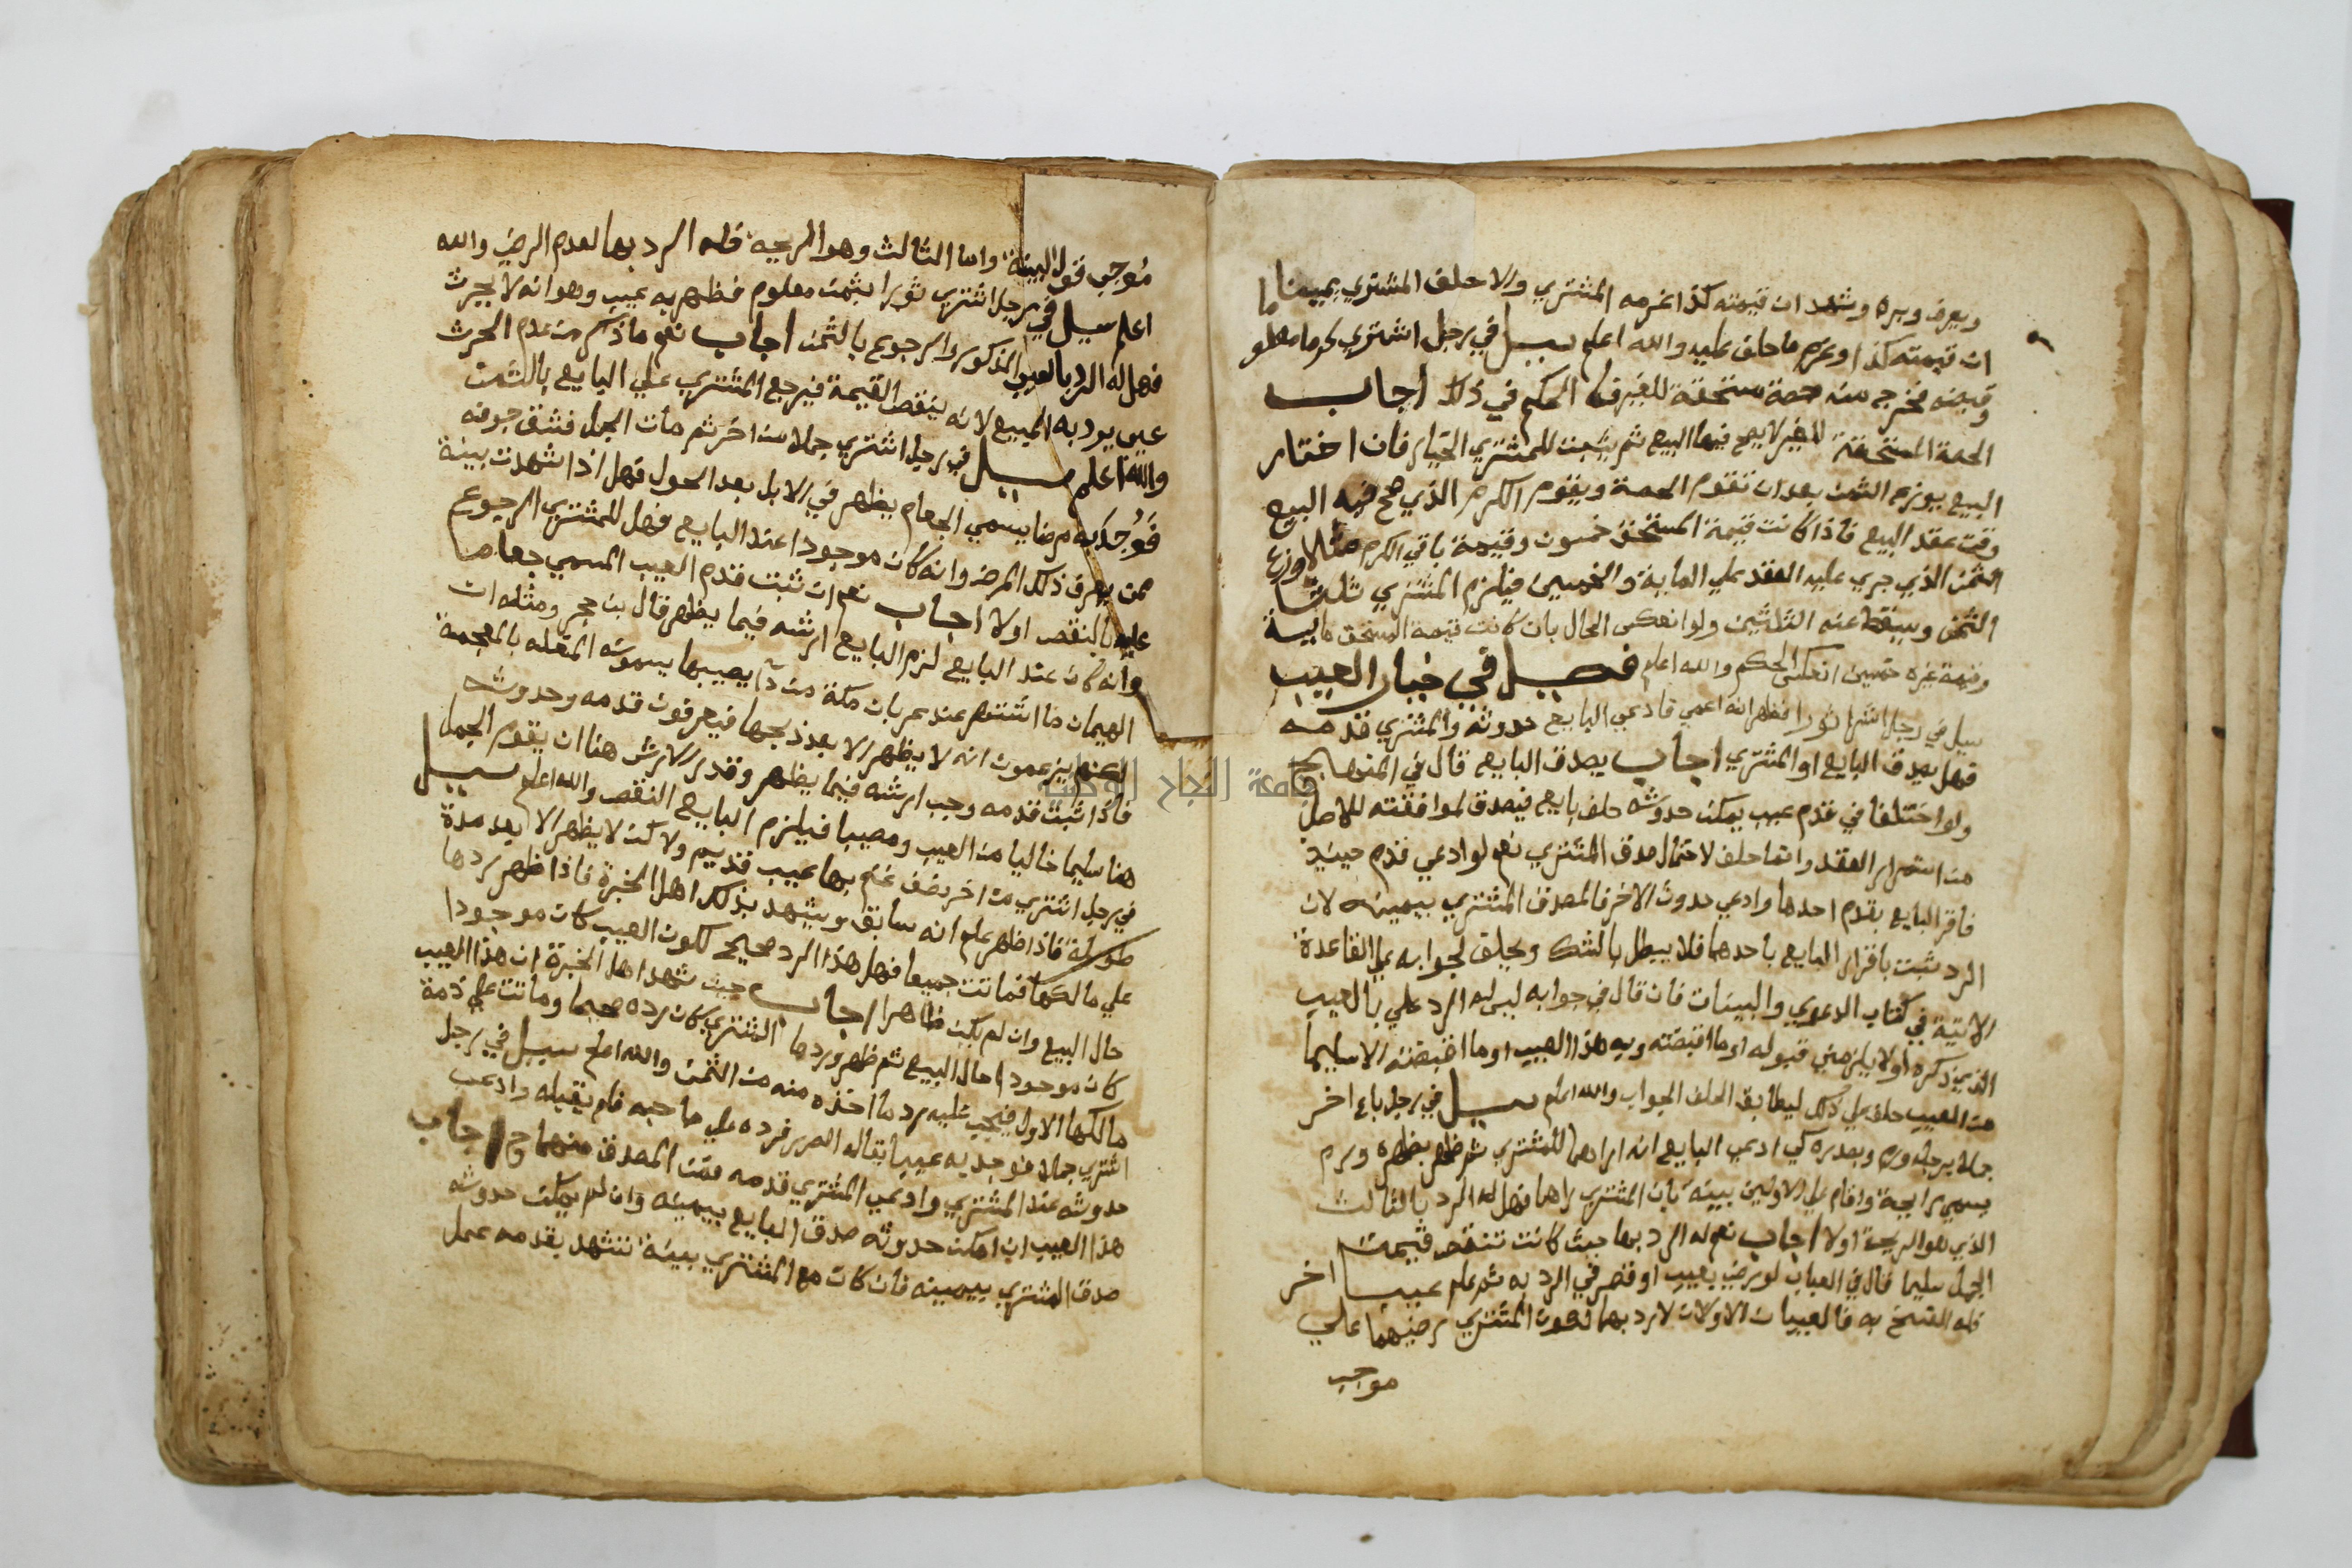 ويعرف وبره وشهد ان قيمته كذا غرمه المشتري والا حلف المشتري يمينا ما
ان قيمته كذا وغرم ما حلف عليه والله اعلم سيل في رجل اشترى كرما معلو
وقبضه فخرج منه حصة مستحقة للغير فما الحكم في ذلك اجاب
الحصة المستحقة للغير لا يصح فيها البيع ثم يثبت للمشتري الخيار فان اختار
البيع يوزع الثمن بعد ان تقوم الحصة ويقوم الكرم الذي صح فيه البيع
وقت عقد البيع فاذا كانت قيمة المستحق خمسون وقيمة باقي الكرم مثلا وزع
الثمن الذي جرى عليه العقد على الماية والخمسين فيلزم المشتري ثلثا
الثمن ويسقط عنه الثلثين ولو انعكس الحال بان كانت قيمة المستحق ماية
وقيمة غيره خمسين انعكس الحكم والله اعلم فصل في خيار العيب
سيل في رجل اشترا ثورا فظهر انه اعمى فادعى البايع حدوثه والمشتري قدمه
فهل يصدق البايع او المشتري اجاب يصدق البايع قال في المنهاج
ولو اختلفا في قدم عيب يمكن حدوثه حلف بايع فيصدق لموافقته للاصل
من استمرار العقد وانما حلف لاحتمال صدق المشتري نعم لو ادعى قدم عيبين
فاقر البايع بقدم احدهما وادعى حدوث الاخر فالمصدق المشتري بيمينه لان
الرد ثبت باقرار البايع باحدهما فلا يبطل بالشك ويحلف لجوابه على القاعدة
الاتية في كتاب الدعوى والبينات فان قال في جوابه ليس له الرد علي بالعيب
الذي ذكره اولا يلزمني قبوله او ما اقبضته وبه هذا العيب او ما اقبضته الا سليما
من العيب حلف على ذلك ليطابق الحلف الجواب والله اعلم سيل في رجل باع اخر
جملا برجله ورم وبصدره كي ادعى البايع انه اراهما للمشتري ثم ظهر بظهره ورم
يسمى رايحة واقام على الاولين بينة بان المشتري راهما فهل له الرد بالثالث
الذي هو الريحة اولا اجاب نعم له الرد بها حيث كانت تنقص قيمة
الجمل سليما قال في العباب لو رضي بعيب او قصر في الرد به ثم علم عيبا اخر
فله الفسخ به فالعيبان الاولان لا رد بهما لكون المشتري رضيهما على
موجب
مُوجب قول البينة واما الثالث وهو الريحه فله الرد بها لعدم الرضى والله
اعلم سيل في رجل اشترى ثورا بثمن معلوم فظهر به عيب وهو انه لا يحرث
فهل له الرد بالعيب المذكور والرجوع بالثمن اجاب نعم ما ذكر من عدم الحرث
عيب يرد به المبيع لانه ينقص القيمة فيرجع المشتري على البايع بالثمن
والله اعلم سيل في رجل اشترى جملا من اخر ثم مات الجمل فشق جوفه
فَوُجد به مرضا يسمى الجعام يظهر في الابل بعد الحول فهل اذا شهدت بينة
ممن يعرف ذلك المرض وانه كان موجودا عند البايع فهل للمشتري الرجوع
عليه بالنقص اولا اجاب نعم ان ثبت قدم العيب المسمى جعاما
وانه كان عند البايع لزم البايع ارشه فيما يظهر قال بن حجر ومثله ان
الهيمان ما اشتهر عند عربان مكة من داء يصيبها يسمونه المغله بالمعجمة
لكنهم يزعمون انه لا يظهر الا بعد ذبحها فيعرفون قدمه وحدوثه
فاذا ثبت قدمه وجب ارشه فيما يظهر وقدر الارش هنا ان يقوم الجمل
هنا سليما خاليا من العيب ومعيبا فيلزم البايع النقص والله اعلم سيل
في رجل اشترى من اخر نصف غنم بها عيب قديم ولا كن لا يظهر الا بعد مدة
طويلة فاذا ظهر علم انه سابق ويشهد بذلك اهل الخبرة فاذا ظهر ردها
على مالكها فماتت جميعا فهل هذا الرد صحيح لكون العيب كان موجودا
حال البيع وان لم يكن ظاهرا اجاب حيث شهد اهل الخبرة ان هذا العيب
كان موجودا حال البيع ثم ظهر وردها المشتري كان رده صحيحا وماتت على ذمة
مالكها الاول فيجب عليه رد ما اخذه منه من الثمن والله اعلم سيل في رجل
اشترى جملا فوجد به عيبا يقال له الصرر فرده على صاحبه فلم يقبله وادعى
حدوثه عند المشتري وادعى المشتري قدمه فمن المصدق منهما ح اجاب
هذا العيب ان امكن حدوثه صدق البايع بيمينه وان لم يمكن حدوثه
صدق المشتري بيمينه فان كان مع المشتري بينة تشهد بقدمه عمل
جامعة النجاح الوطنية